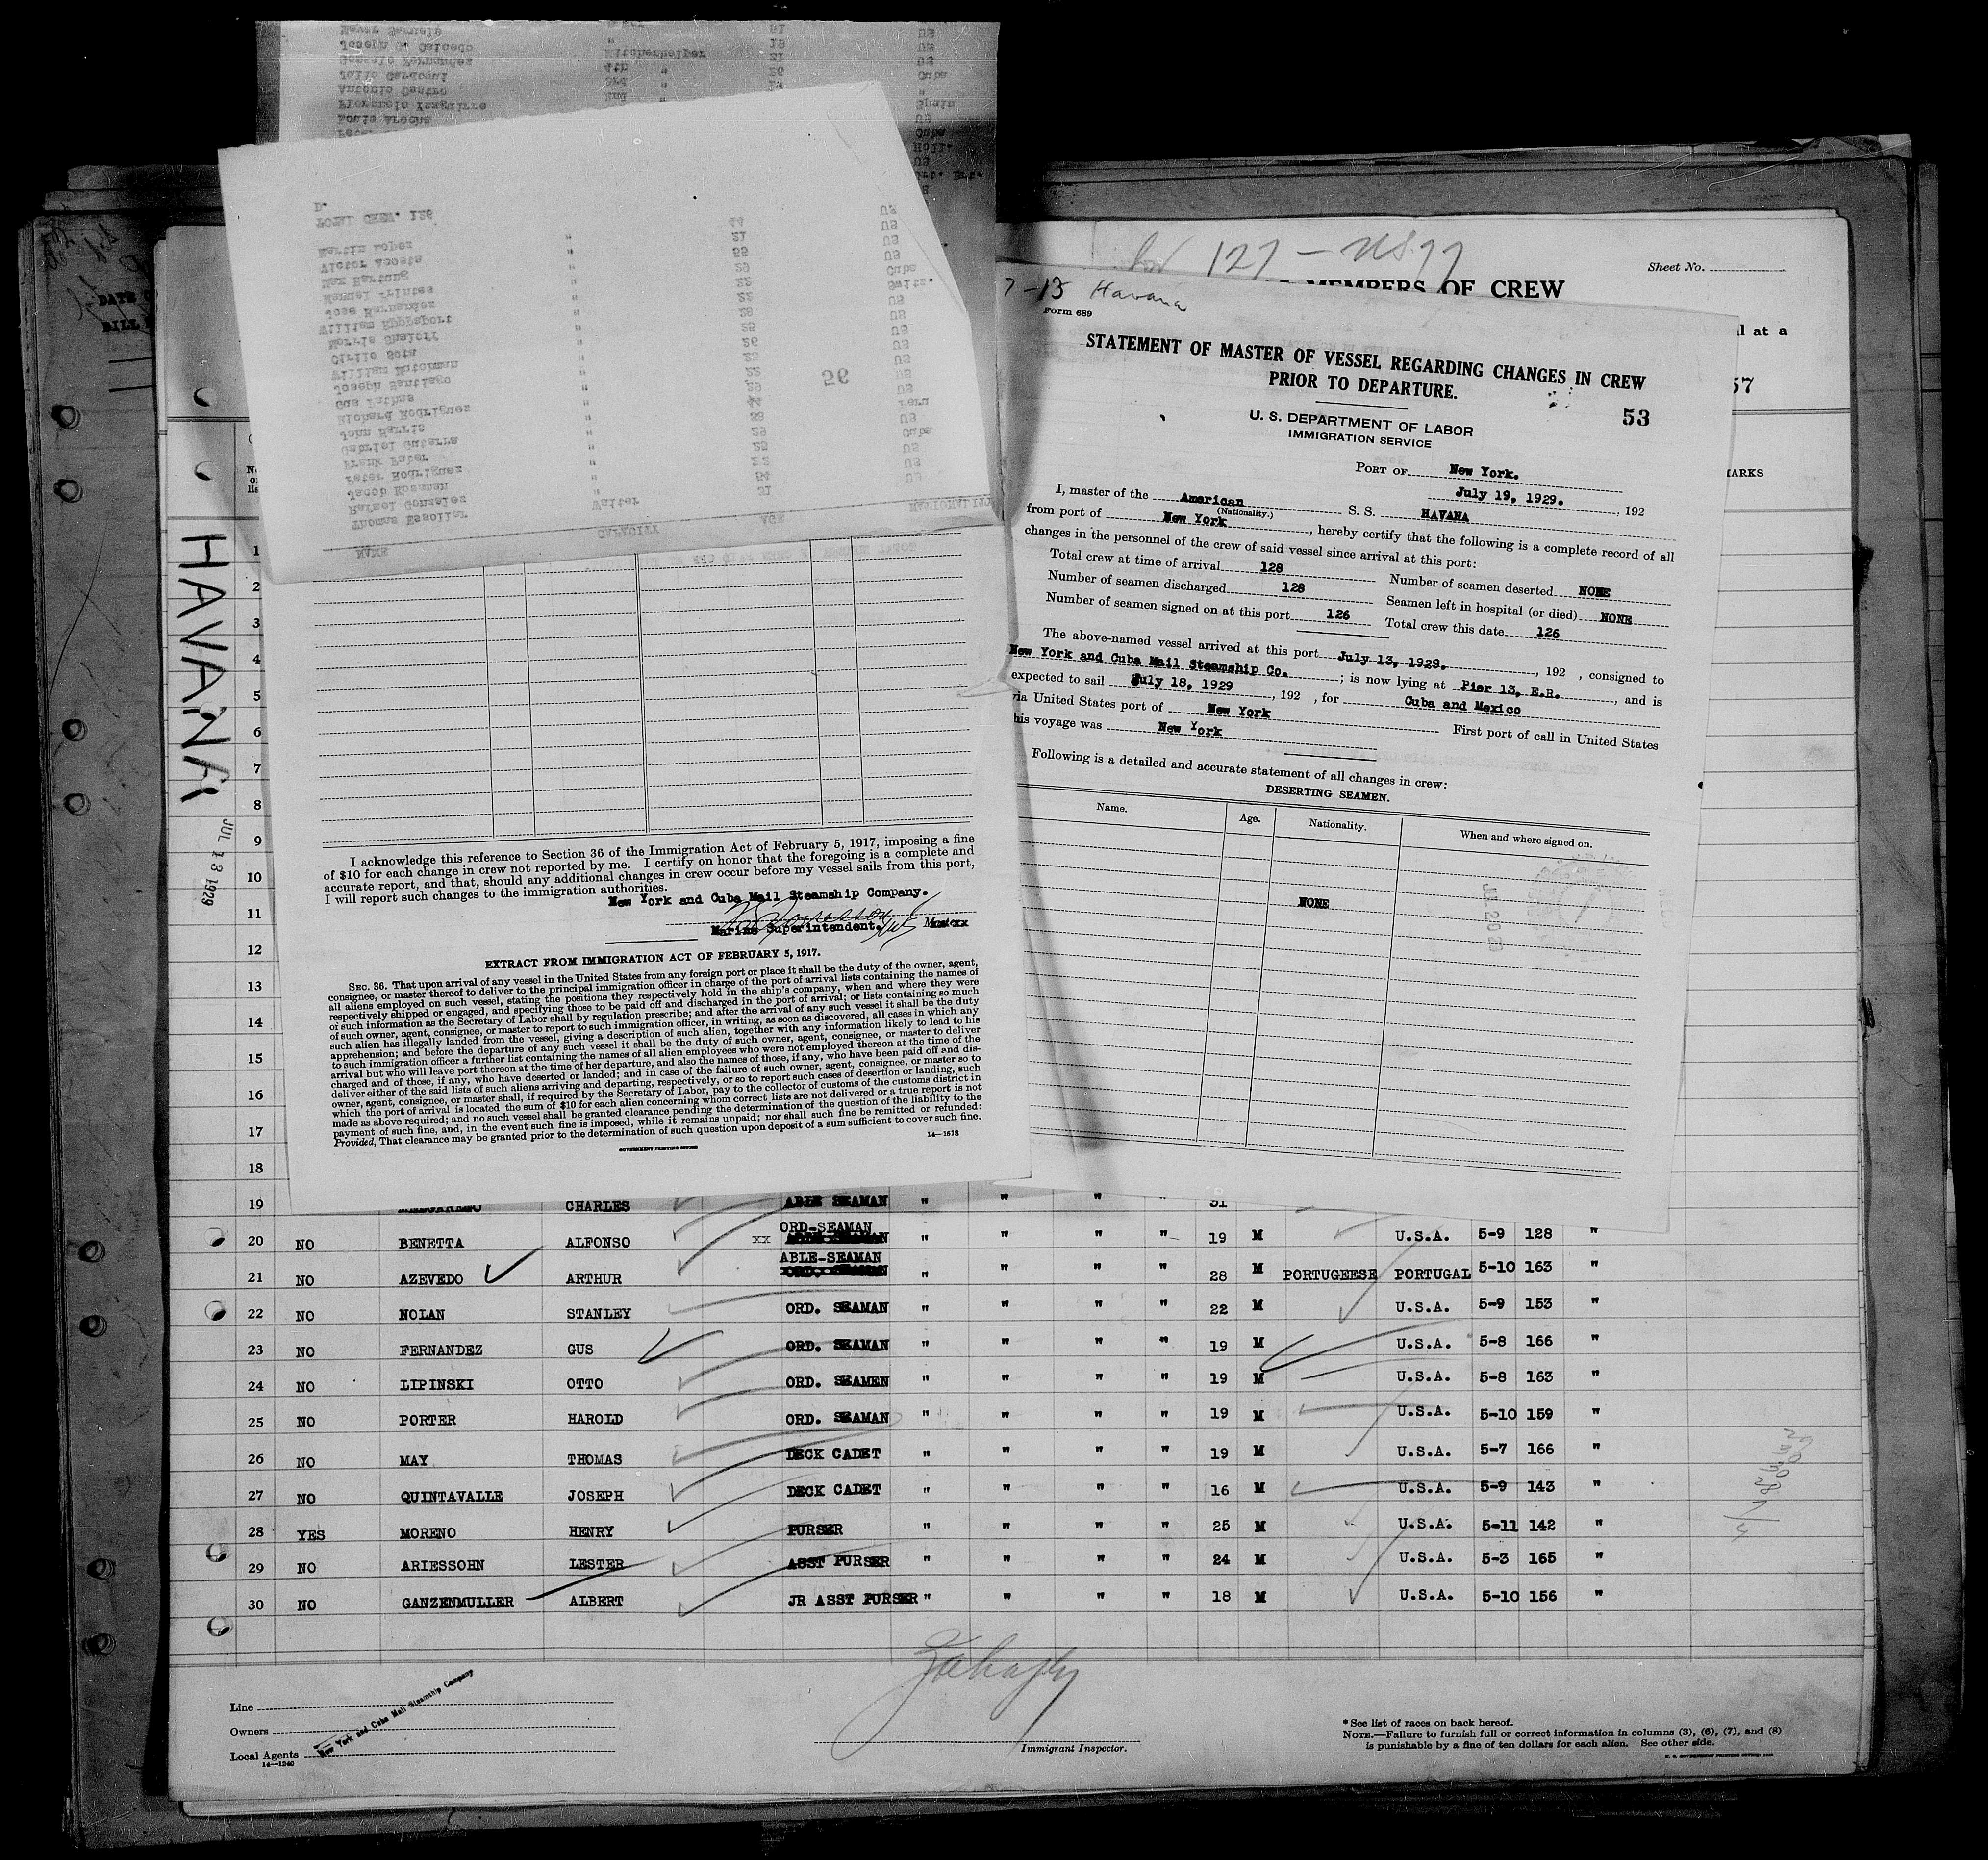 Mayer Samuels " 31 US
Joseph G. Salcedo " 19 US
Gonzalo Fernandez Kitchenhelper 21 US
Julio Gardoqui 4th " 26 Cuba
Antonio Castro 3rd " 19 "
Florencio Yzaguirre 2nd " Spain
Louis Arocha US
Cuba
Holl.
US
TOTAL CREW. 126
Martin Lopez " 44 US
Victor Acosta " 21 US
Max Hartung " 55 US
Manuel Printes " 29 Cuba
Jose Hernandez " 22 Switz.
William Rappaport " US
Morris Shaloff " US
Cirilo Sota " US
William Hutchman " US
Joseph Santiago " US
Gus Pathas " US
Richard Rodriguez " Peru
John Harris " US
Gabriel Gutarra " Cuba
Frank Faber " US
Peter Rodriguez " US
Jacob Rosman " US
Rafael Gonzales "
Thomas Essoiler Waiter 31
NAME CAPACITY AGE NATIONALITY
56
127 - US 77
Sheet No.
MEMBERS OF CREW
l at a
57
MARKS
DATE
BILL
HAVANA
JUL 13 1929
7-13 Havana
Form 689
STATEMENT OF MASTER OF VESSEL REGARDING CHANGES IN CREW
PRIOR TO DEPARTURE.
53
U. S. DEPARTMENT OF LABOR
IMMIGRATION SERVICE
PORT OF New York.
July 19, 1929. , 192
I, master of the American S. S. HAVANA
(Nationality.)
from port of New York , hereby certify that the following is a complete record of all
changes in the personnel of the crew of said vessel since arrival at this port:
Total crew at time of arrival 128 Number of seamen deserted NONE
Number of seamen discharged 128 Seamen left in hospital (or died) NONE
Number of seamen signed on at this port 126 Total crew this date 126
The above-named vessel arrived at this port July 13, 1929. , 192 , consigned to
New York and Cuba Mail Steamship Co. ; is now lying at Pier 13, E.R. , and is
expected to sail July 18, 1929 , 192 , for Cuba and Mexico
via United States port of New York First port of call in United States
his voyage was New York
Following is a detailed and accurate statement of all changes in crew:
DESERTING SEAMEN.
Name. Age. Nationality. When and where signed on.
NONE
I acknowledge this reference to Section 36 of the Immigration Act of February 5, 1917, imposing a fine
of $10 for each change in crew not reported by me. I certify on honor that the foregoing is a complete and
accurate report, and that, should any additional changes in crew occur before my vessel sails from this port,
I will report such changes to the immigration authorities.
New York and Cuba Mail Steamship Company.
Marine Superintendent.
EXTRACT FROM IMMIGRATION ACT OF FEBRUARY 5, 1917.
SEC. 36. That upon arrival of any vessel in the United States from any foreign port or place it shall be the duty of the owner, agent,
consignee, or master thereof to deliver to the principal immigration officer in charge of the port of arrival lists containing the names of
all aliens employed on such vessel, stating the positions they respectively hold in the ship's company, when and where they were
respectively shipped or engaged, and specifying those to be paid off and discharged in the port of arrival; or lists containing so much
of such information as the Secretary of Labor shall by regulation prescribe; and after the arrival of any such vessel it shall be the duty
of such owner, agent, consignee, or master to report to such immigration officer, in writing, as soon as discovered, all cases in which any
such alien has illegally landed from the vessel, giving a description of such alien, together with any information likely to lead to his
apprehension; and before the departure of any such vessel it shall be the duty of such owner, agent, consignee, or master to deliver
to such immigration officer a further list containing the names of all alien employees who were not employed thereon at the time of the
arrival but who will leave port thereon at the time of her departure, and also the names of those, if any, who have been paid off and dis-
charged and of those, if any, who have deserted or landed; and in case of the failure of such owner, agent, consignee, or master so to
deliver either of the said lists of such aliens arriving and departing, respectively, or so to report such cases of desertion or landing, such
owner, agent, consignee, or master shall, if required by the Secretary of Labor, pay to the collector of customs of the customs district in
which the port of arrival is located the sum of $10 for each alien concerning whom correct lists are not delivered or a true report is not
made as above required; and no such vessel shall be granted clearance pending the determination of the question of the liability to the
payment of such fine, and, in the event such fine is imposed, while it remains unpaid; nor shall such fine be remitted or refunded:
Provided, That clearance may be granted prior to the determination of such question upon deposit of a sum sufficient to cover such fine.
14—1618
GOVERNMENT PRINTING OFFICE
1
2
3
4
5
6
7
8
9
10
11
12
13
14
15
16
17
18
19 CHARLES ABLE SEAMAN " " " " 31
20 NO BENETTA ALFONSO xx ORD-SEAMAN " " " " 19 M U.S.A. 5-9 128 "
21 NO AZEVEDO ARTHUR ABLE-SEAMAN " " " " 28 M PORTUGEESE PORTUGAL 5-10 163 "
22 NO NOLAN STANLEY ORD. SEAMAN " " " " 22 M U.S.A. 5-9 153 "
23 NO FERNANDEZ GUS ORD. SEAMAN " " " " 19 M U.S.A. 5-8 166 "
24 NO LIPINSKI OTTO ORD. SEAMEN " " " " 19 M U.S.A. 5-8 163 "
25 NO PORTER HAROLD ORD. SEAMAN " " " " 19 M U.S.A. 5-10 159 "
26 NO MAY THOMAS DECK CADET " " " " 19 M U.S.A. 5-7 166 "
27 NO QUINTAVALLE JOSEPH DECK CADET " " " " 16 M U.S.A. 5-9 143 "
28 YES MORENO HENRY PURSER " " " " 25 M U.S.A. 5-11 142 "
29 NO ARIESSOHN LESTER ASST PURSER " " " " 24 M U.S.A. 5-3 165 "
30 NO GANZENMULLER ALBERT JR ASST PURSER " " " " 18 M U.S.A. 5-10 156 "
Line
Owners
Local Agents
New York and Cuba Mail Steamship Company
14—1240
Immigrant Inspector.
* See list of races on back hereof.
NOTE.—Failure to furnish full or correct information in columns (3), (6), (7), and (8)
is punishable by a fine of ten dollars for each alien. See other side.